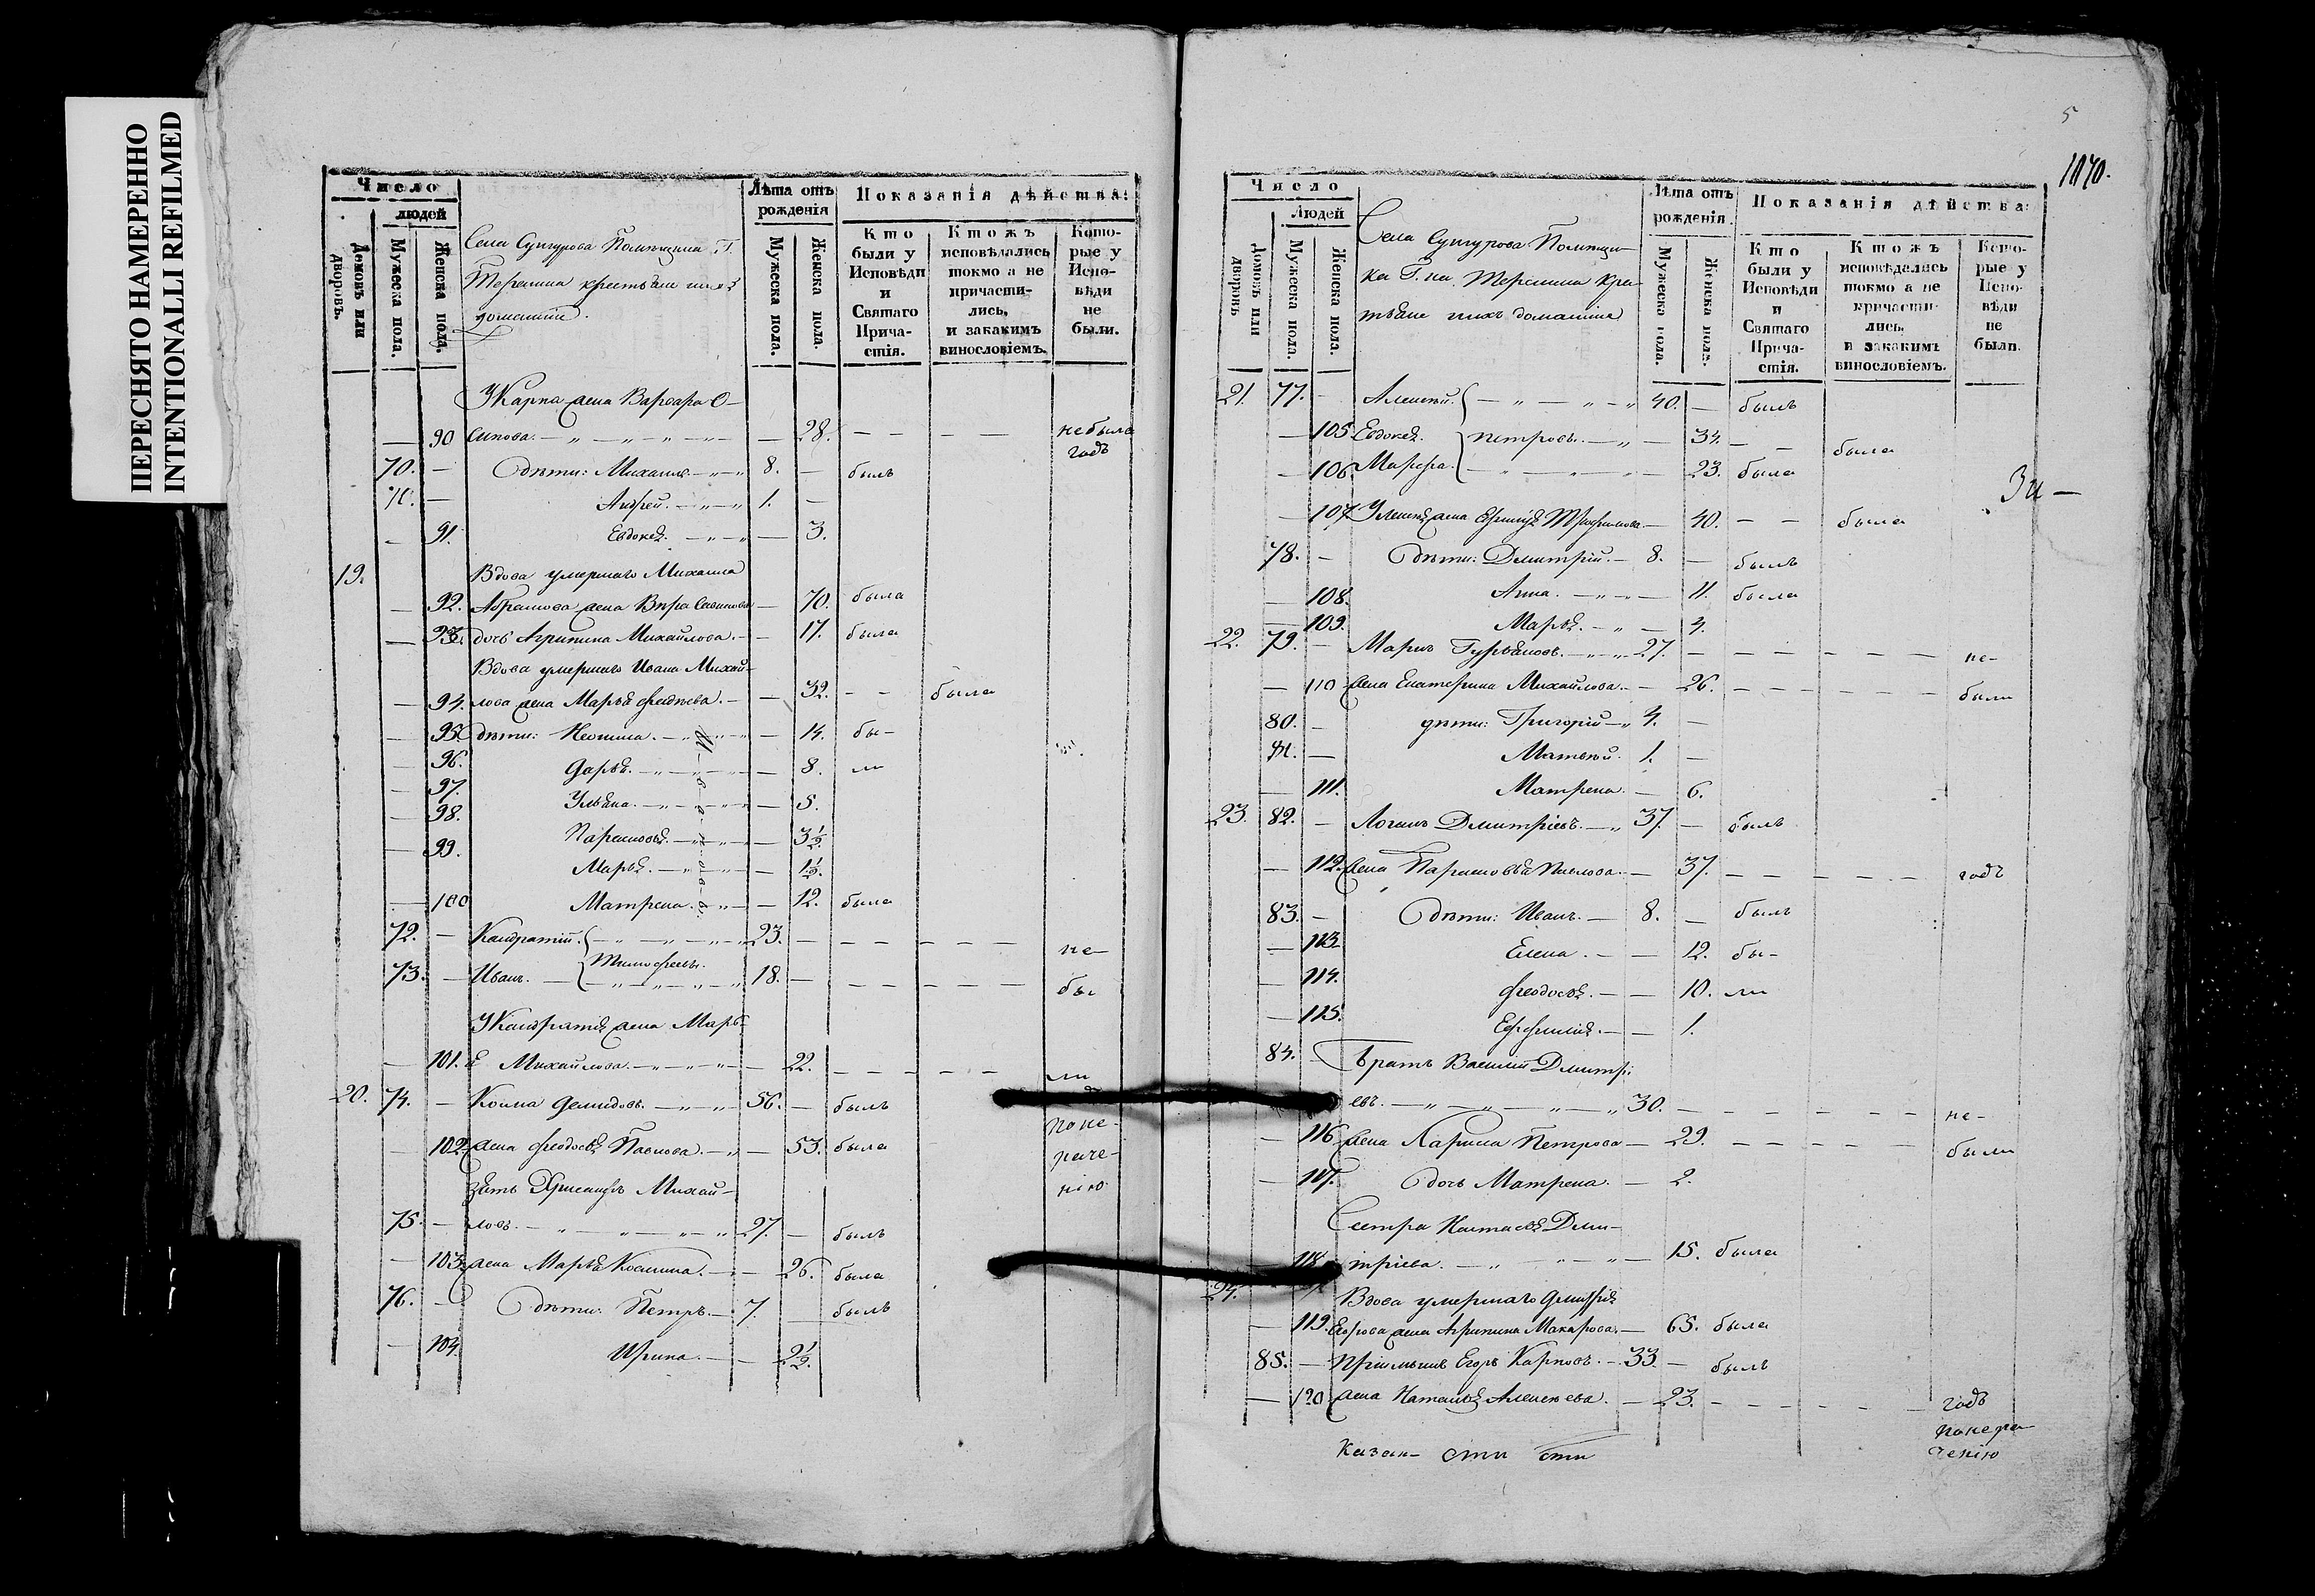 ПЕРЕСНЯТО НАМЕРЕННО
INTENTIONALLI REFILMED
Число
людей
Домовъ или дворовъ.
Мужеска пола.
Женска пола.
Села Сунгурова Помѣщика Г.
крестьяне
домашніе.
Лѣта отъ рожденія
Мужеска пола.
Женска пола.
Показанія дѣйства:
Кто были у Исповѣди и Святаго Причастія.
Ктожъ исповѣдались токмо а не причастились, и закакимъ винословіемъ.
Которые у Исповѣди не были.
У Карпа жена Варвара О-
90 сипова. — 28. — — небыла
годъ
70. — дѣти: Михаилъ. 8. — былъ
71. — Андрей. 1. —
— 91. Евдокея. — 3.
19. Вдова умершаго Михаила
— 92. Абрамова жена Вѣра Савинова — 70. была
— 93. дочь Агрипина Михайлова. — 17. была
Вдова умершаго Ивана Михай-
— 94. лова жена Марья — 32. — — была
— 95. дѣти: — 14. бы-
— 96. Дарья. — 8. ли
— 97. Ульяна. — 5.
— 98. Парасковья. — 3½.
— 99. Марья. — 1½.
— 100 Матрена. — 12. была
72. — Кандратій. 23. — не-
73. — Иванъ. Тимофеевы. 18. — бы
У Кандратія жена Марь-
— 101. я Михайлова. — 22. ли
20. 74. — Косма Демидовъ. 56. — былъ
— 102. жена Феодосья Павлова. — 53. была
поне-
раче-
нію
зять Хрисанфъ Михай-
75. — ловъ. 27. — былъ
— 103. жена Марья Космина. — 26. была
76. — дѣти: Петръ. 7. былъ
— 104. Ирина. — 2½.
5
1070.
Число
Людей
Домовъ или дворовъ
Мужеска пола.
Женска пола.
Села Сунгурова Помѣщи-
ка Г. на кре-
стьяне ихъ домашніе
Лѣта отъ рожденія.
Мужеска пола.
Женска пола.
Показанія дѣйства:
Кто были у Исповѣди и Святаго Причастія.
Ктожъ исповѣдались токмо а не причастились, и закакимъ винословіемъ.
Которые у Исповѣди не были.
21. 77. — Алексѣй. 40. — былъ
— 105. Евдокея. Петровы. — 34. — — была
— 106. Марфа. — 23. была
— 107. У Алексѣя жена Трофимова. — 40. — — была
78. — дѣти: Дмитрій. 8. — былъ
— 108. Анна. — 11. была
— 109. Марья. — 4.
22. 79. — Маркъ Гурьяновъ. 27. — не-
— 110 жена Екатерина Михайлова. — 26. были
80. — дѣти: Григорій 4. —
81. — Матвѣй. 1. —
— 111. Матрена. — 6.
23. 82. — Логинъ Дмитріевъ. 37. — былъ
— 112. жена Парасковья Павлова. — 37. годъ
83. — дѣти: Иванъ. 8. — былъ
— 113. Елена. — 12. бы-
— 114. Феодосья. — 10. ли
— 115. Евфимія. — 1.
84. — Братъ Василій Дмитрі
евъ. 30. — не-
— 116 жена Петрова — 29. были
— 117. дочь Матрена. — 2.
Сестра Настасья Дми-
— 118 тріева. — 15. была
24. Вдова умершаго Дмитрія
— 119. Егорова жена Агрипина Макарова. — 65. была
85. — Пріемышъ Егоръ Карповъ. 33. — былъ
— 120 жена Наталья Алексѣева. — 23. годъ
понера
ченію